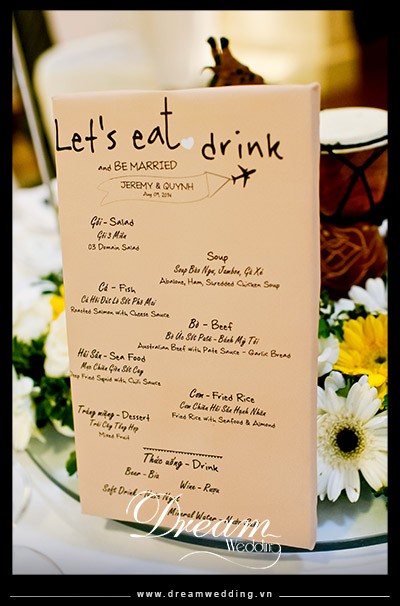 Let's eat drink
and BE MARRIED
JEREMY & QUYNH
Aug 09, 2014
Gỏi - Salad
Gỏi 3 Miền
03 Domain Salad
Soup
Soup Bào Ngư, Jambon, Gà Xé
Abalone, Ham, Shredded Chicken Soup
Cá - Fish
Cá Hồi Đút Lò Sốt Phô Mai
Roasted Salmon with Cheese Sauce
Bò - Beef
Bò Úc Sốt Patê - Bánh Mỳ Tỏi
Australian Beef with Pate Sauce - Garlic Bread
Hải Sản - Sea Food
Mực Chiên Giòn Sốt Cay
Deep Fried Squid with Chili Sauce
Cơm - Fried Rice
Cơm Chiên Hải Sản Hạnh Nhân
Fried Rice with Seafood & Almond
Tráng miệng - Dessert
Trái Cây Tổng Hợp
Mixed Fruit
Thức uống - Drink
Beer - Bia
Wine - Rượu
Soft Drink
Mineral Water - Nước
Dream
Wedding
www.dreamwedding.vn